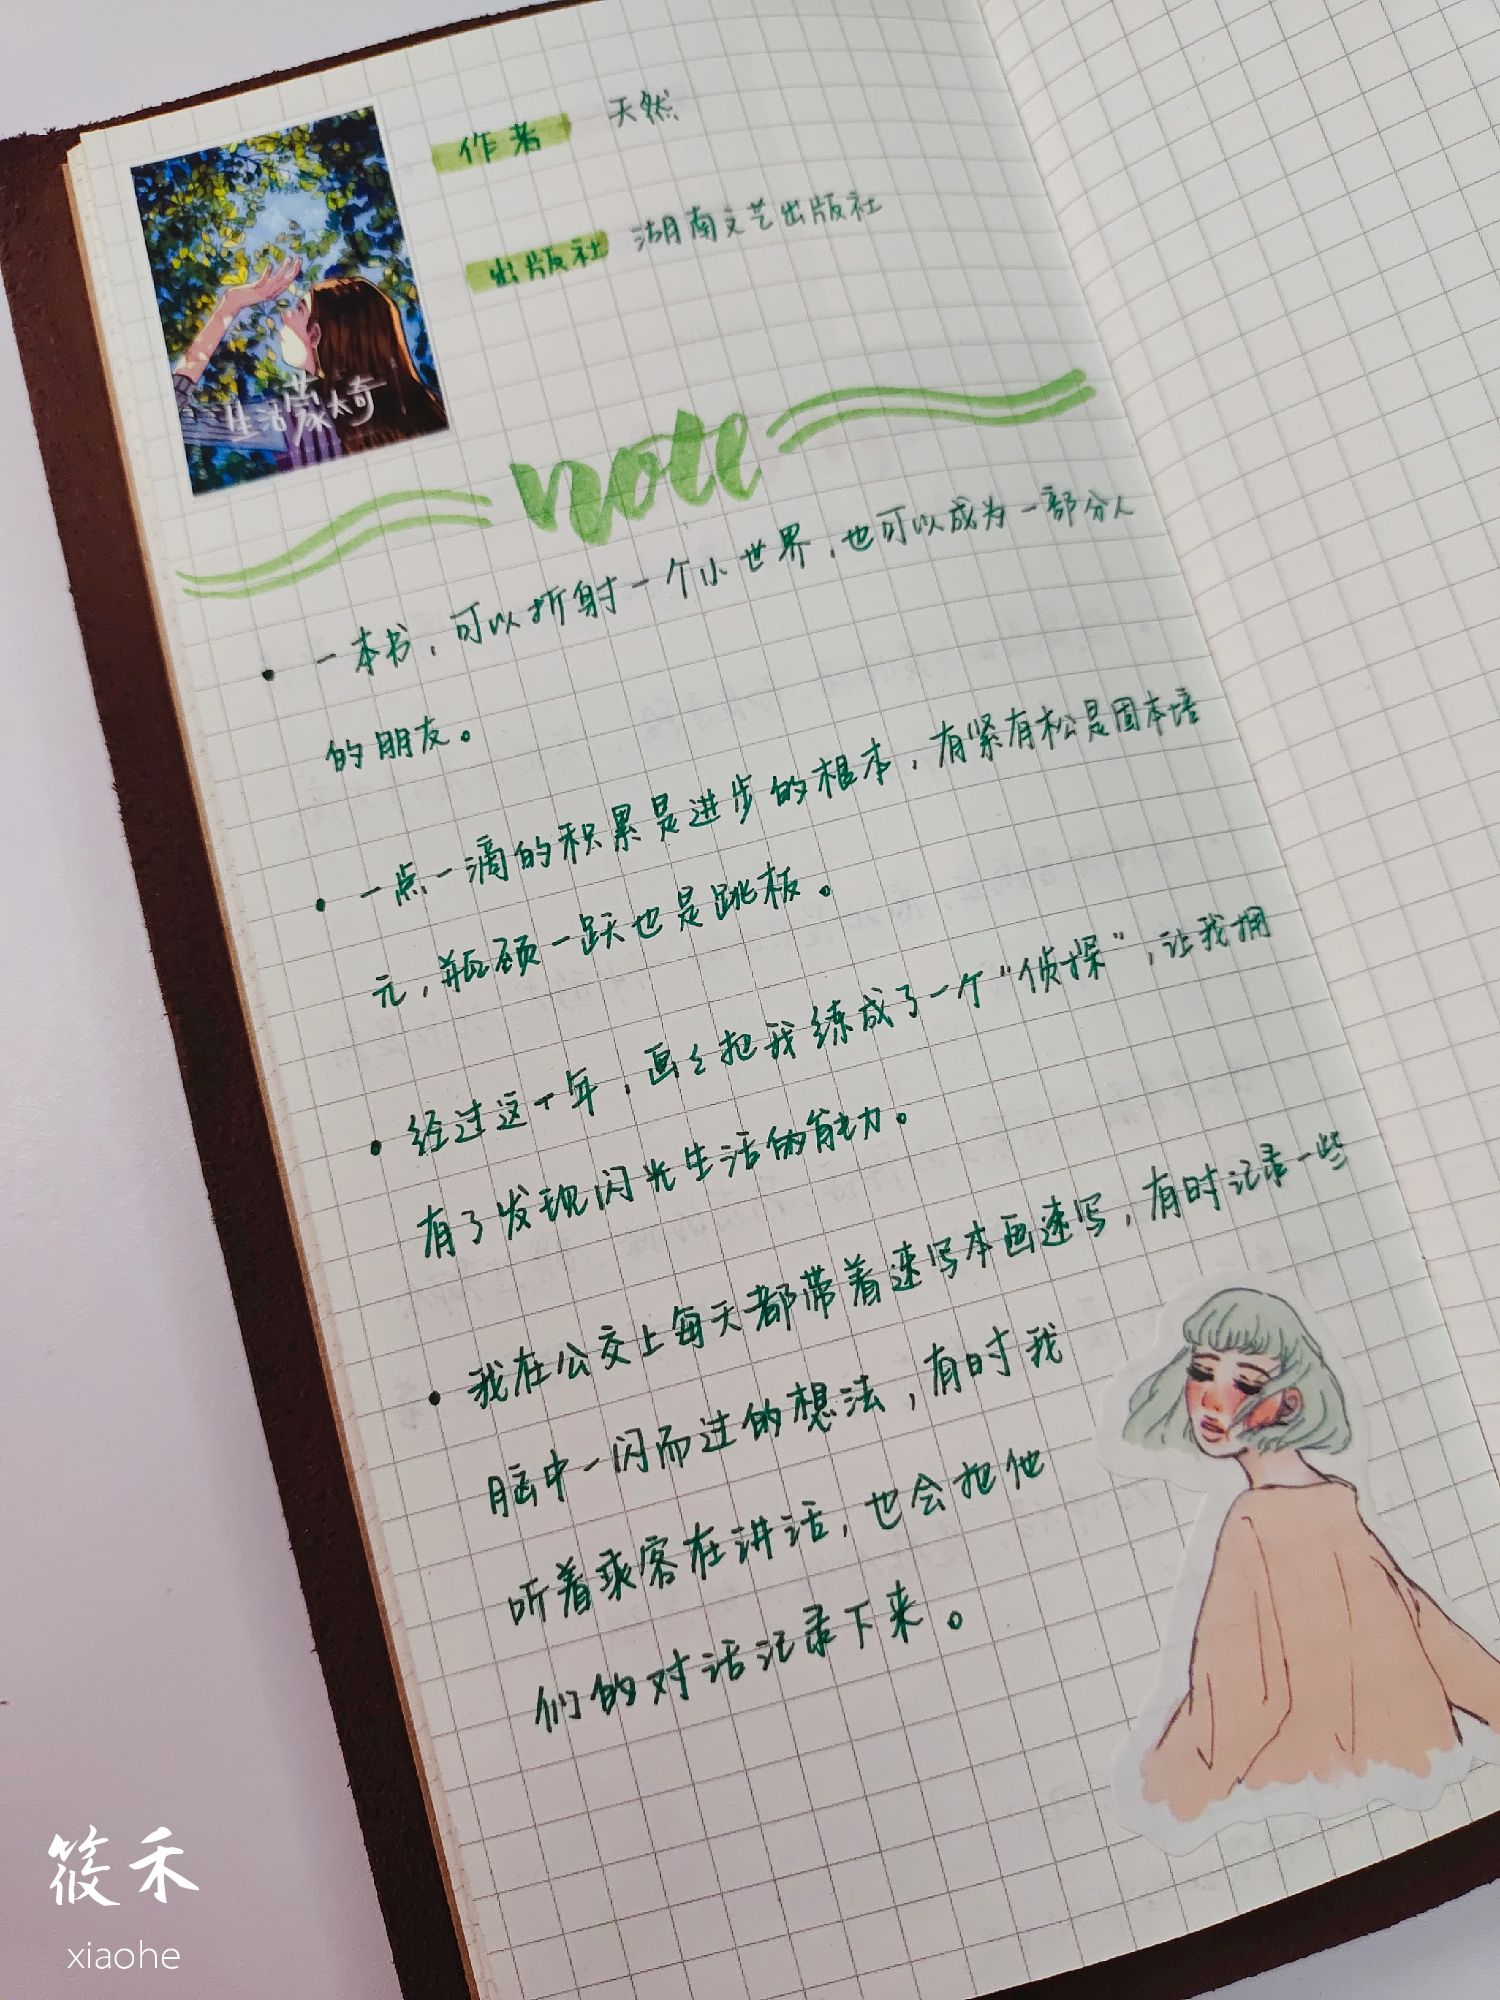 作者 天然
出版社 湖南文艺出版社
生活蒙太奇
note
• 一本书，可以折射一个小世界，也可以成为一部分人
的朋友。
• 一点一滴的积累是进步的根本，有紧有松是固本培
元，瓶颈一跃也是跳板。
• 经过这一年，画画把我练成了一个“侦探”，让我拥
有了发现闪光生活的能力。
• 我在公交上每天都带着速写本画速写，有时记录一些
脑中一闪而过的想法，有时我
听着乘客在讲话，也会把他
们的对话记录下来。
筱禾
xiaohe